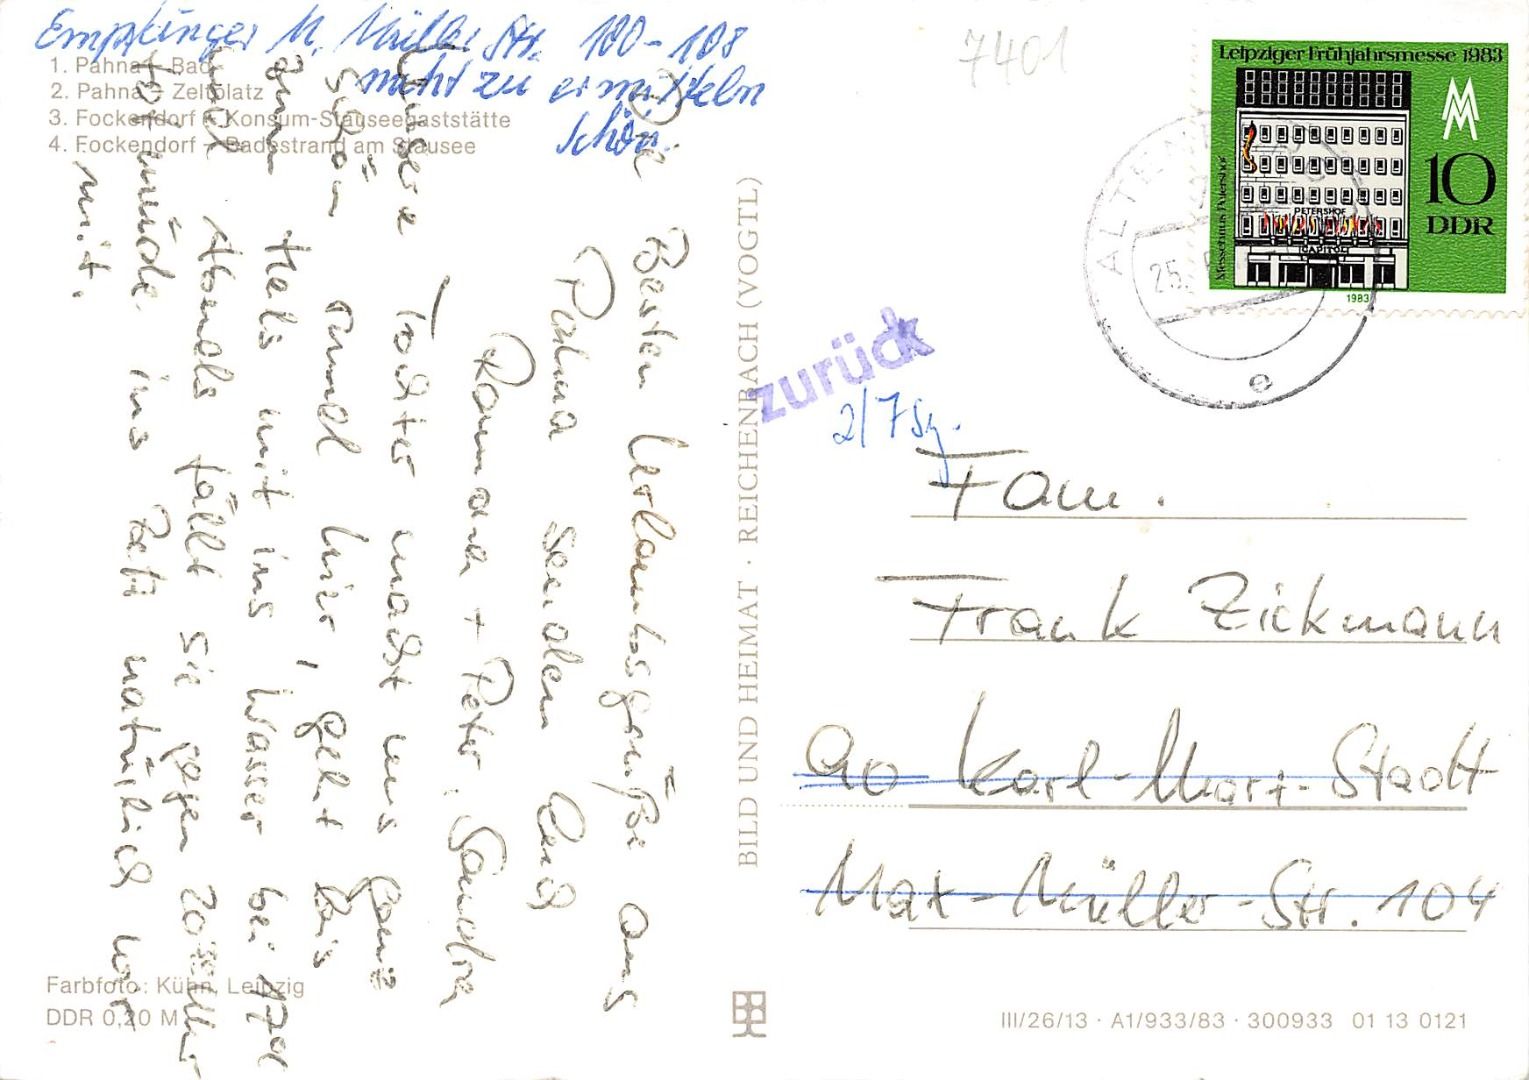 Empfänger M. Müller Str. 100-108
nicht zu ermitteln
Schön.
1. Pahna – Bad
2. Pahna – Zeltplatz
3. Fockendorf – Konsum-Stauseegaststätte
4. Fockendorf – Badestrand am Stausee
Die Besten Urlaubsgrüße aus
Pahna senden Euch
Ramona + Peter, Sandra
Unsere Tochter macht uns ganz
schön rund hier, geht bis
zum Hals mit ins Wasser bei 17°C
und Abends fällt sie gegen 20 Uhr
tot müde ins Bett natürlich wir
mit.
Farbfoto: Kühn, Leipzig
DDR 0,20 M
BILD UND HEIMAT · REICHENBACH (VOGTL)
7401
Leipziger Frühjahrsmesse 1983
Messehaus Petershof
PETERSHOF
CAPITOL
10
DDR
1983
ALTEN
25.
zurück
2/7
Fam.
Frank Zickmann
90 Karl-Marx-Stadt
Max-Müller-Str. 104
III/26/13 · A1/933/83 · 300933 01 13 0121